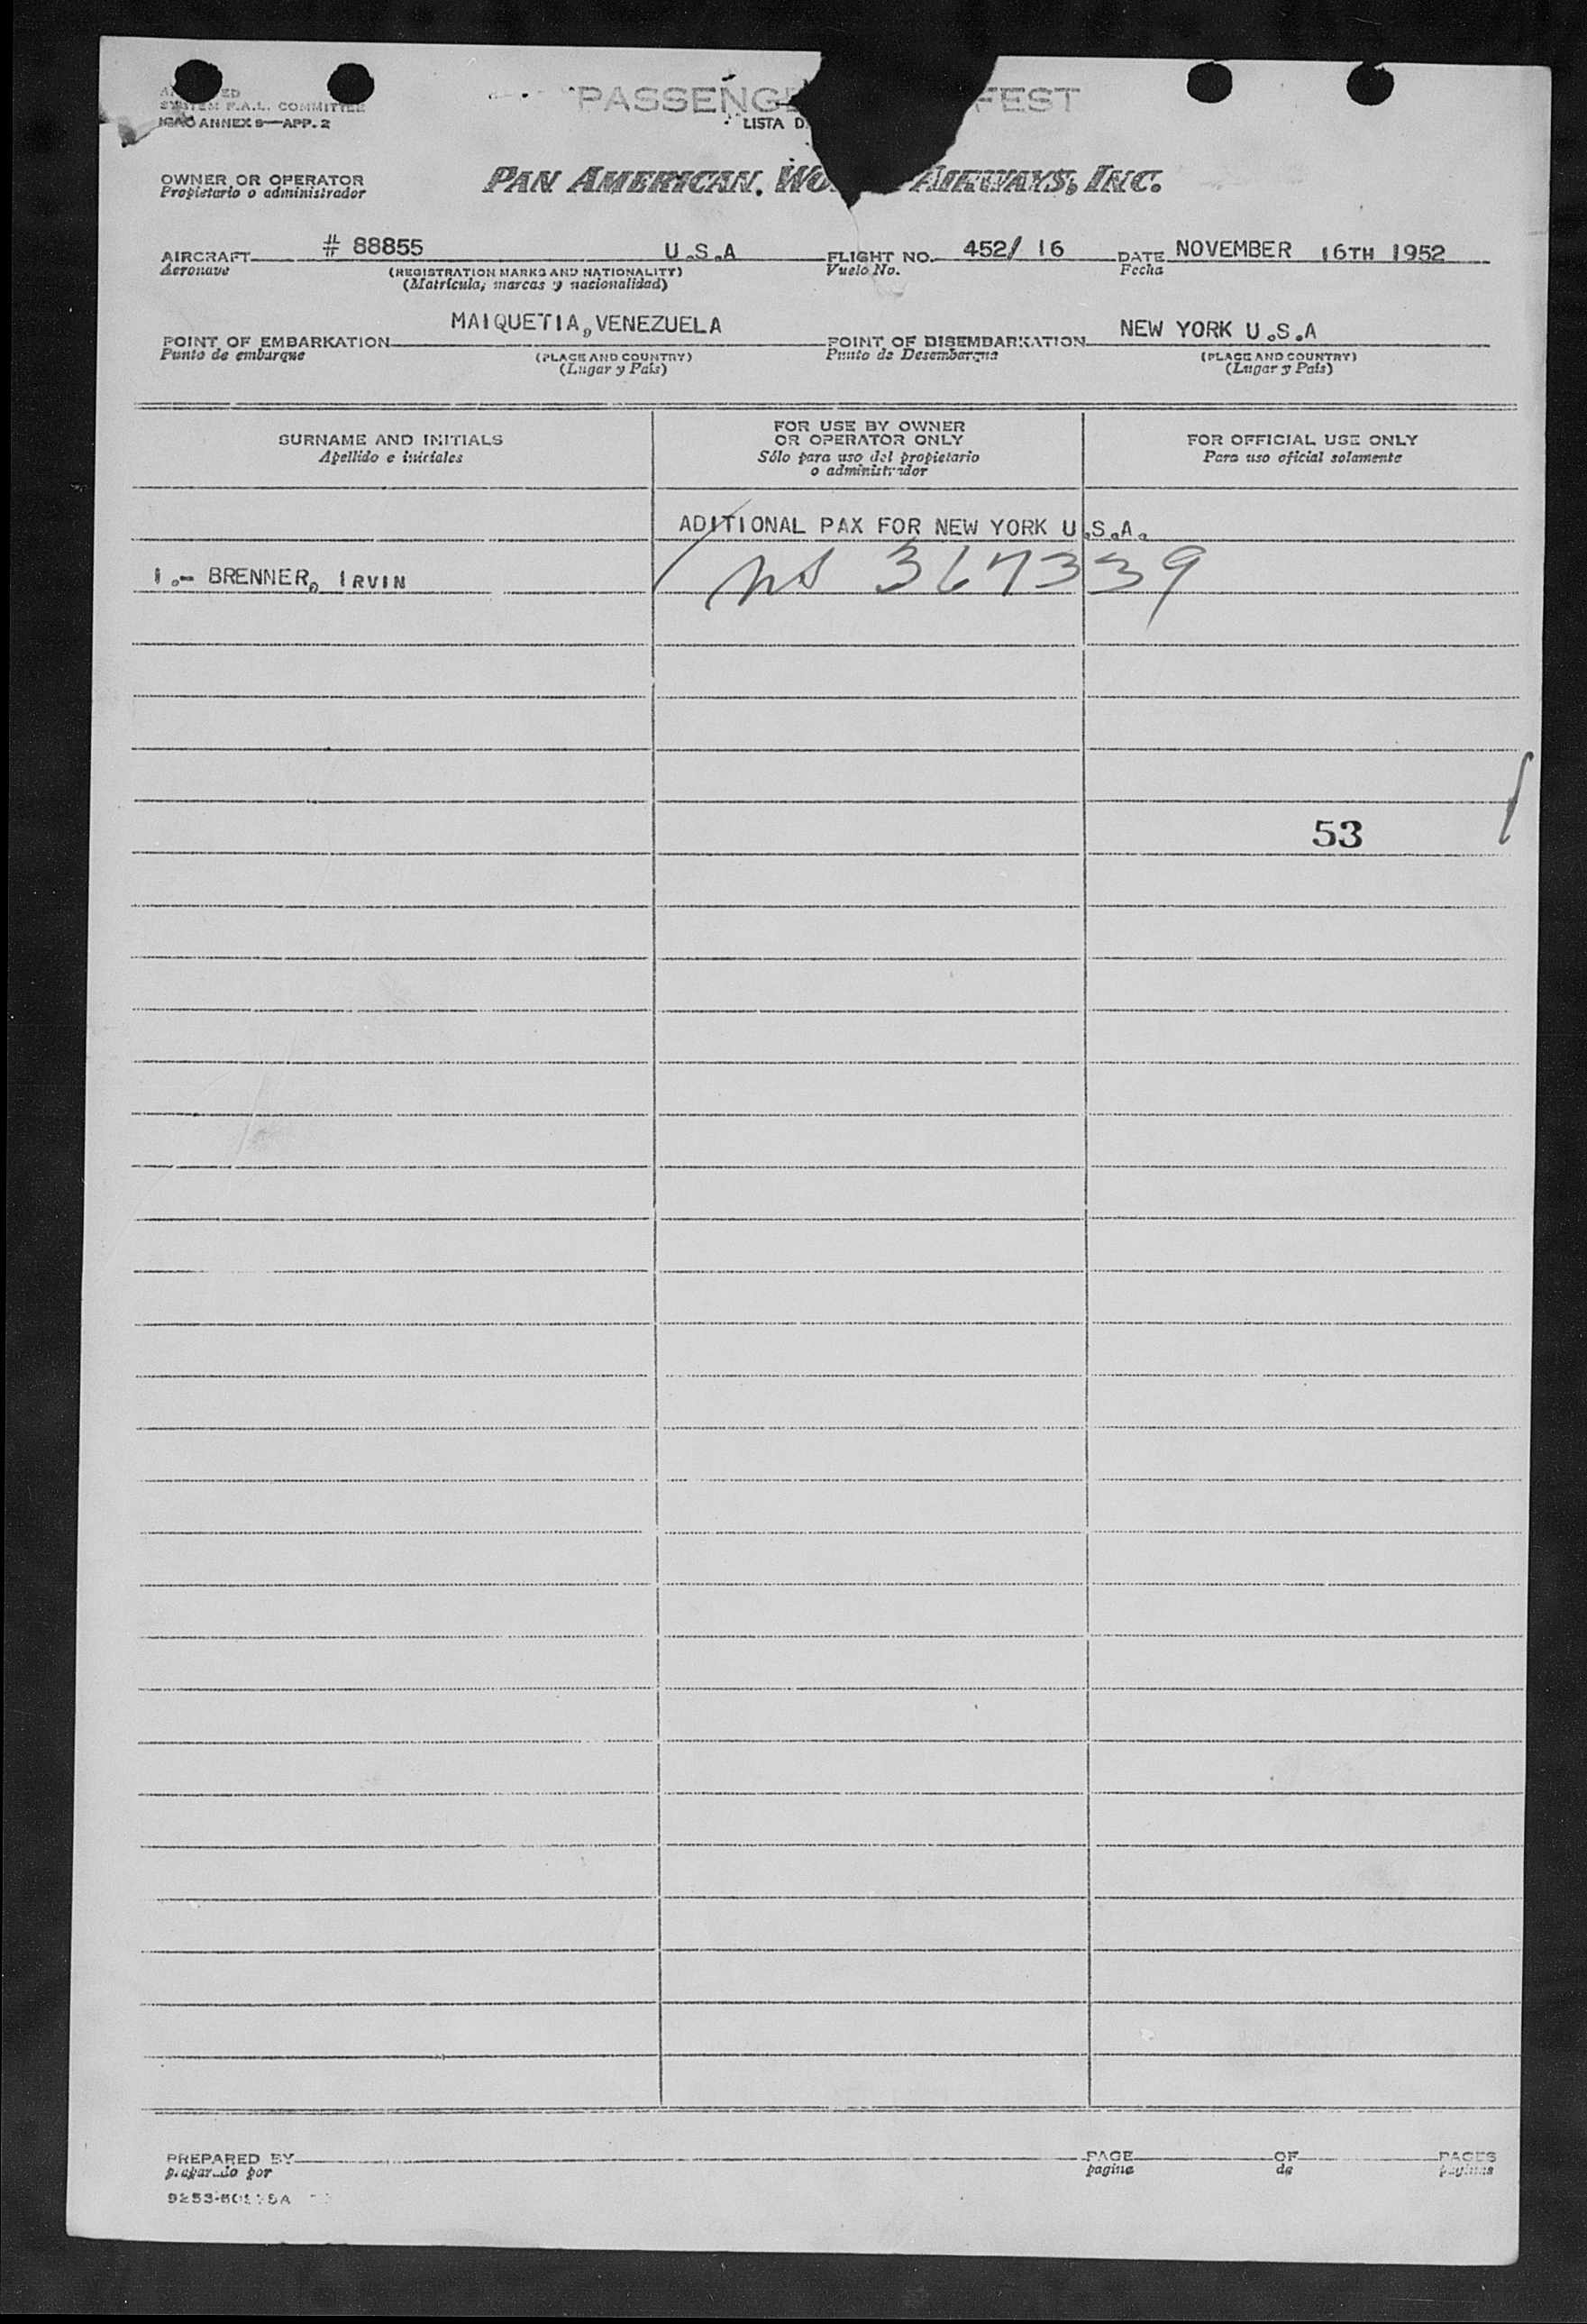 SYSTEM F.A.L. COMMITTEE
ICAO ANNEX 9—APP. 2
PASSENGE FEST
LISTA D
OWNER OR OPERATOR
Propietario o administrador
PAN AMERICAN WO AIRWAYS, INC.
AIRCRAFT # 88855 U.S.A FLIGHT NO. 452/ 16 DATE NOVEMBER 16TH 1952
Aeronave (REGISTRATION MARKS AND NATIONALITY) Vuelo No. Fecha
(Matrícula, marcas y nacionalidad)
POINT OF EMBARKATION MAIQUETIA, VENEZUELA POINT OF DISEMBARKATION NEW YORK U.S.A
Punto de embarque (PLACE AND COUNTRY) Punto de Desembarque (PLACE AND COUNTRY)
(Lugar y País) (Lugar y País)
SURNAME AND INITIALS
Apellido e iniciales
FOR USE BY OWNER
OR OPERATOR ONLY
Sólo para uso del propietario
o administrador
FOR OFFICIAL USE ONLY
Para uso oficial solamente
ADITIONAL PAX FOR NEW YORK U.S.A.
1.- BRENNER, IRVIN 367339
53
PREPARED BY PAGE OF PAGES
preparado por pagina de páginas